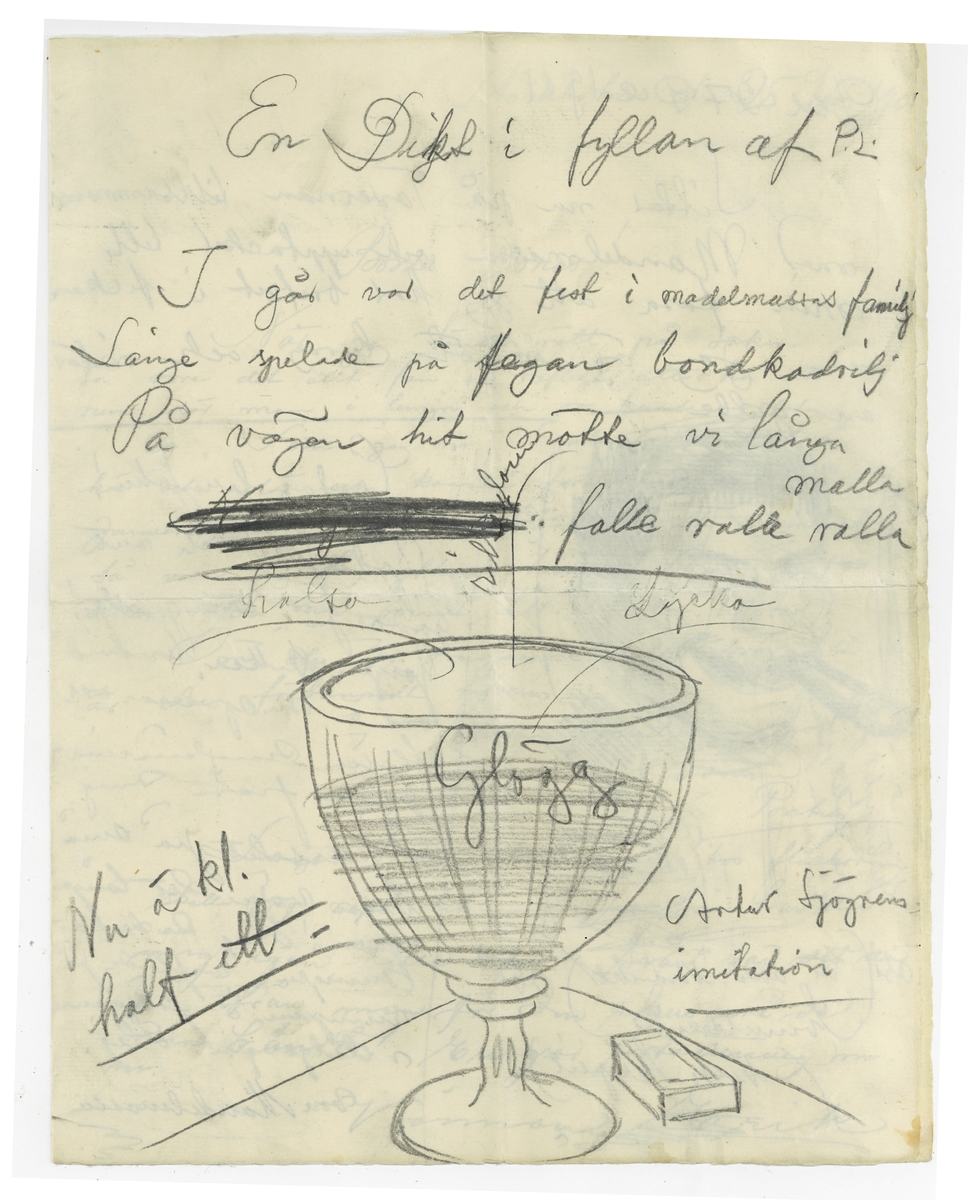 En Dikt i fyllan af P.L.
I går var det fest i madelmassas familj
Länge spelade på fegan bondkadrilj
På vägen hit mötte vi långa
malla
falle ralle ralla
hälsa
Lycka
Glögg
Nu ä kl.
half ett -
Artur Sjögrens-
imitation